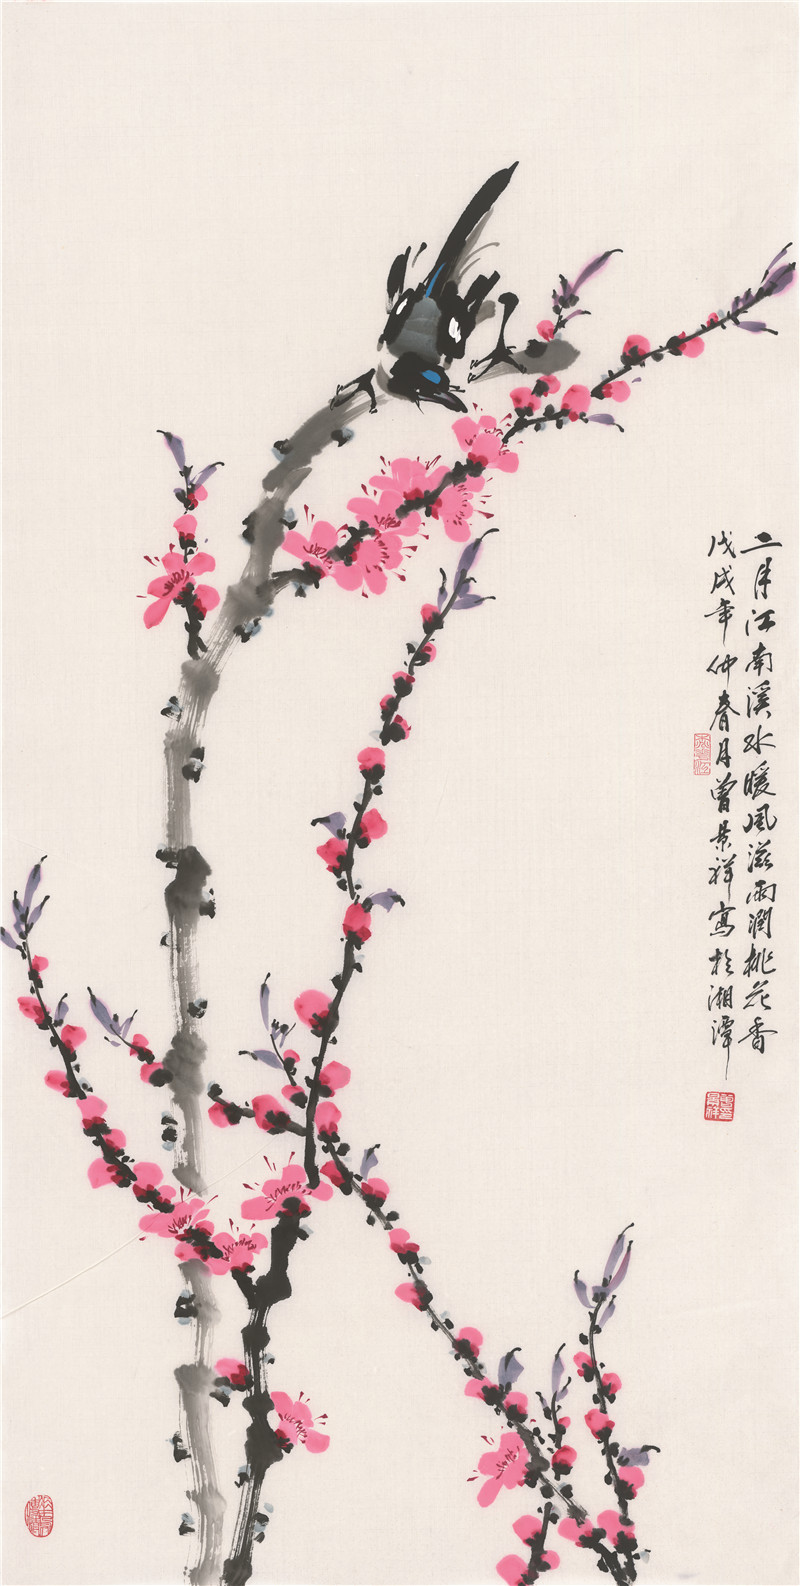 二月江南溪水暖风滋雨润桃花香
戊戌年仲春月曾景祥写于湘潭